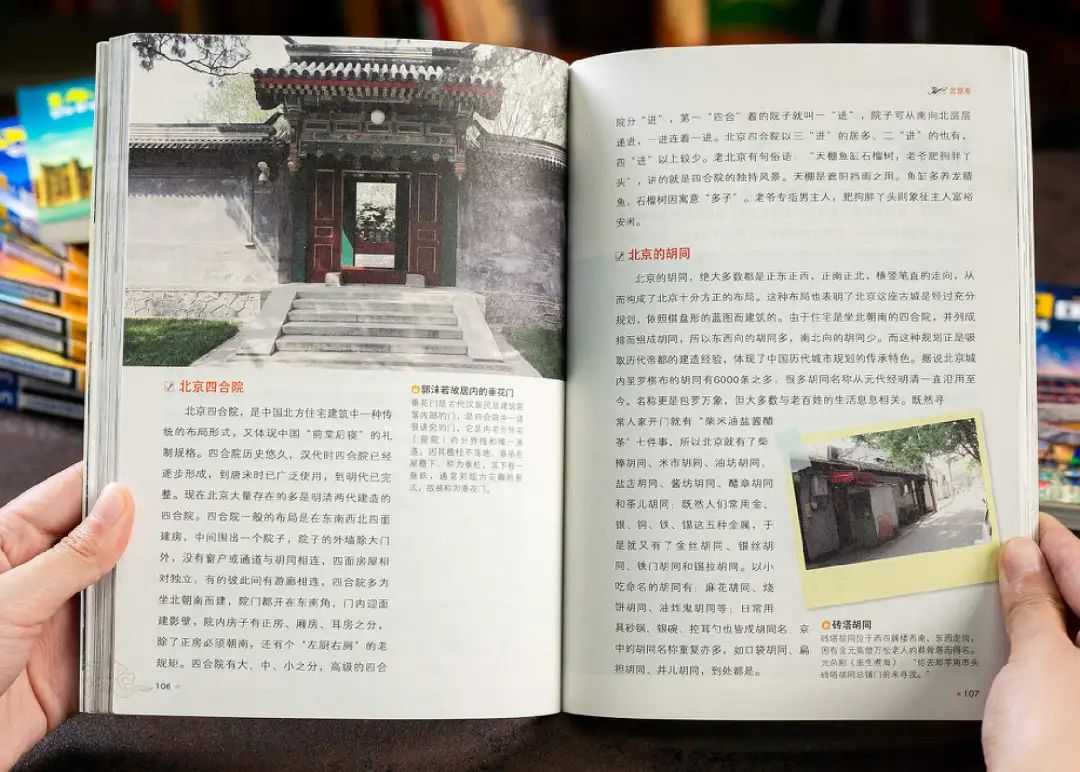 北京四合院
北京四合院，是中国北方住宅建筑中一种传
统的布局形式，又体现中国“前堂后寝”的礼
制规格。四合院历史悠久，汉代时四合院已经
逐步形成，到唐宋时已广泛使用，到明代已完
整。现在北京大量存在的多是明清两代建造的
四合院。四合院一般的布局是在东南西北四面
建房，中间围出一个院子，院子的外墙除大门
外，没有窗户或通道与胡同相连，四面房屋相
对独立，有的彼此间有游廊相连，四合院多为
坐北朝南而建，院门都开在东南角，门内迎面
建影壁，院内房子有正房、厢房、耳房之分，
除了正房必须朝南，还有个“左厨右厕”的老
规矩。四合院有大、中、小之分，高级的四合
郭沫若故居内的垂花门
垂花门是古代汉族民居建筑院
落内部的门，是四合院中一道
很讲究的门，它是内宅与外宅
（前院）的分界线和唯一通
道。因其檐柱不落地，垂吊在
屋檐下，称为垂柱，其下有一
垂珠，通常彩绘为花瓣的形
式，故被称为垂花门。
106
北京市
院分“进”，第一“四合”着的院子就叫一“进”，院子可从南向北层层
递进，一进连着一进。北京四合院以三“进”的居多，二“进”的也有，
四“进”以上较少。老北京有句俗话：“天棚鱼缸石榴树，老爷肥狗胖丫
头”，讲的就是四合院的独特风景。天棚是遮阳挡雨之用。鱼缸多养龙睛
鱼，石榴树因寓意“多子”。老爷专指男主人，肥狗胖丫头则象征主人富裕
安闲。
北京的胡同
北京的胡同，绝大多数都是正东正西，正南正北，横竖笔直的走向，从
而构成了北京十分方正的布局。这种布局也表明了北京这座古城是经过充分
规划，依照棋盘形的蓝图而建筑的。由于住宅是坐北朝南的四合院，并列成
排而组成胡同，所以东西向的胡同多，南北向的胡同少。而这种规划正是吸
取历代帝都的建造经验，体现了中国历代城市规划的传承特色。据说北京城
内星罗棋布的胡同有6000条之多，很多胡同名称从元代经明清一直沿用至
今。名称更是包罗万象，但大多数与老百姓的生活息息相关。既然寻
常人家开门就有“柴米油盐酱醋
茶”七件事，所以北京就有了柴
棒胡同、米市胡同、油坊胡同、
盐店胡同、酱坊胡同、醋章胡同
和茶儿胡同；既然人们常用金、
银、铜、铁、锡这五种金属，于
是就又有了金丝胡同、银丝胡
同、铁门胡同和锡拉胡同。以小
吃命名的胡同有：麻花胡同、烧
饼胡同、油炸鬼胡同等；日常用
具砂锅、银碗、挖耳勺也皆成胡同名；京
中的胡同名称重复亦多，如口袋胡同、扁
担胡同、井儿胡同，到处都是。
砖塔胡同
砖塔胡同位于西四牌楼西南，东西走向，
因有金元高僧万松老人的葬骨塔而得名。
元杂剧《张生煮海》：“你去那羊角市头
砖塔胡同总铺门前来寻我。”
107